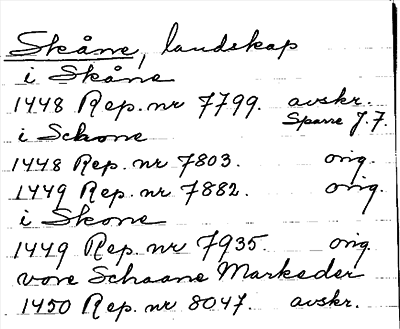 Skåne, landskap
i Skåne
1448 Rep. nr 7799. avskr.
Sparre J. F.
i Schone
1448 Rep. nr 7803. orig.
1449 Rep. nr 7882. orig.
i Skone
1449 Rep. nr 7935. orig.
vore Schaane Markeder
1450 Rep. nr 8047. avskr.